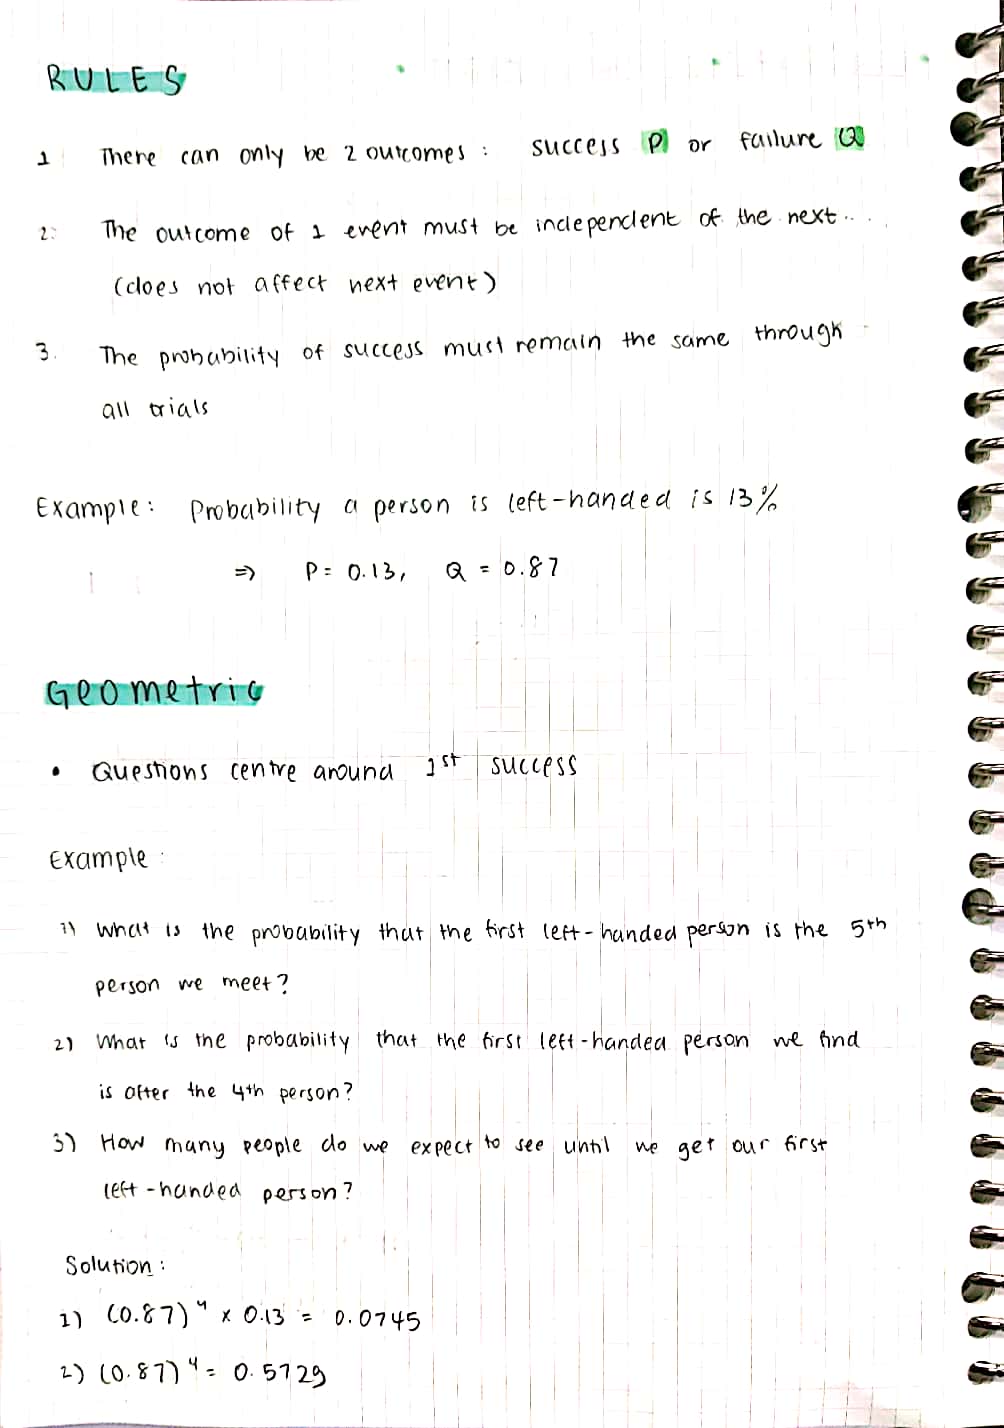 RULES
1 There can only be 2 outcomes : success P or failure Q
2: The outcome of 1 event must be independent of the next...
(does not affect next event)
3. The probability of success must remain the same through
all trials
Example: Probability a person is left-handed is 13%
⇒ P = 0.13, Q = 0.87
Geometric
• Questions centre around 1st success
Example :
1) What is the probability that the first left-handed person is the 5th
person we meet?
2) What is the probability that the first left-handed person we find
is after the 4th person?
3) How many people do we expect to see until we get our first
left-handed person?
Solution :
1) (0.87)⁴ x 0.13 = 0.0745
2) (0.87)⁴ = 0.5729